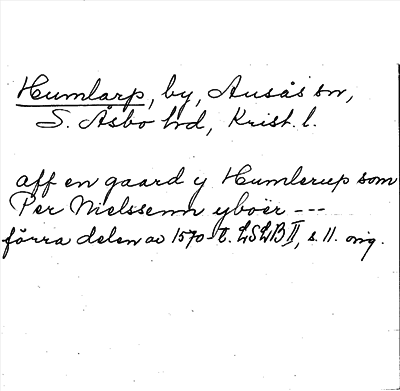 Humlarp, by, Ausås sn,
S. Åsbo hd, Krist. l.
aff en gaard y Humlerup som
Per Nielssenn yboer ---
förra delen av 1570-t. LSLB II, s. 11. orig.